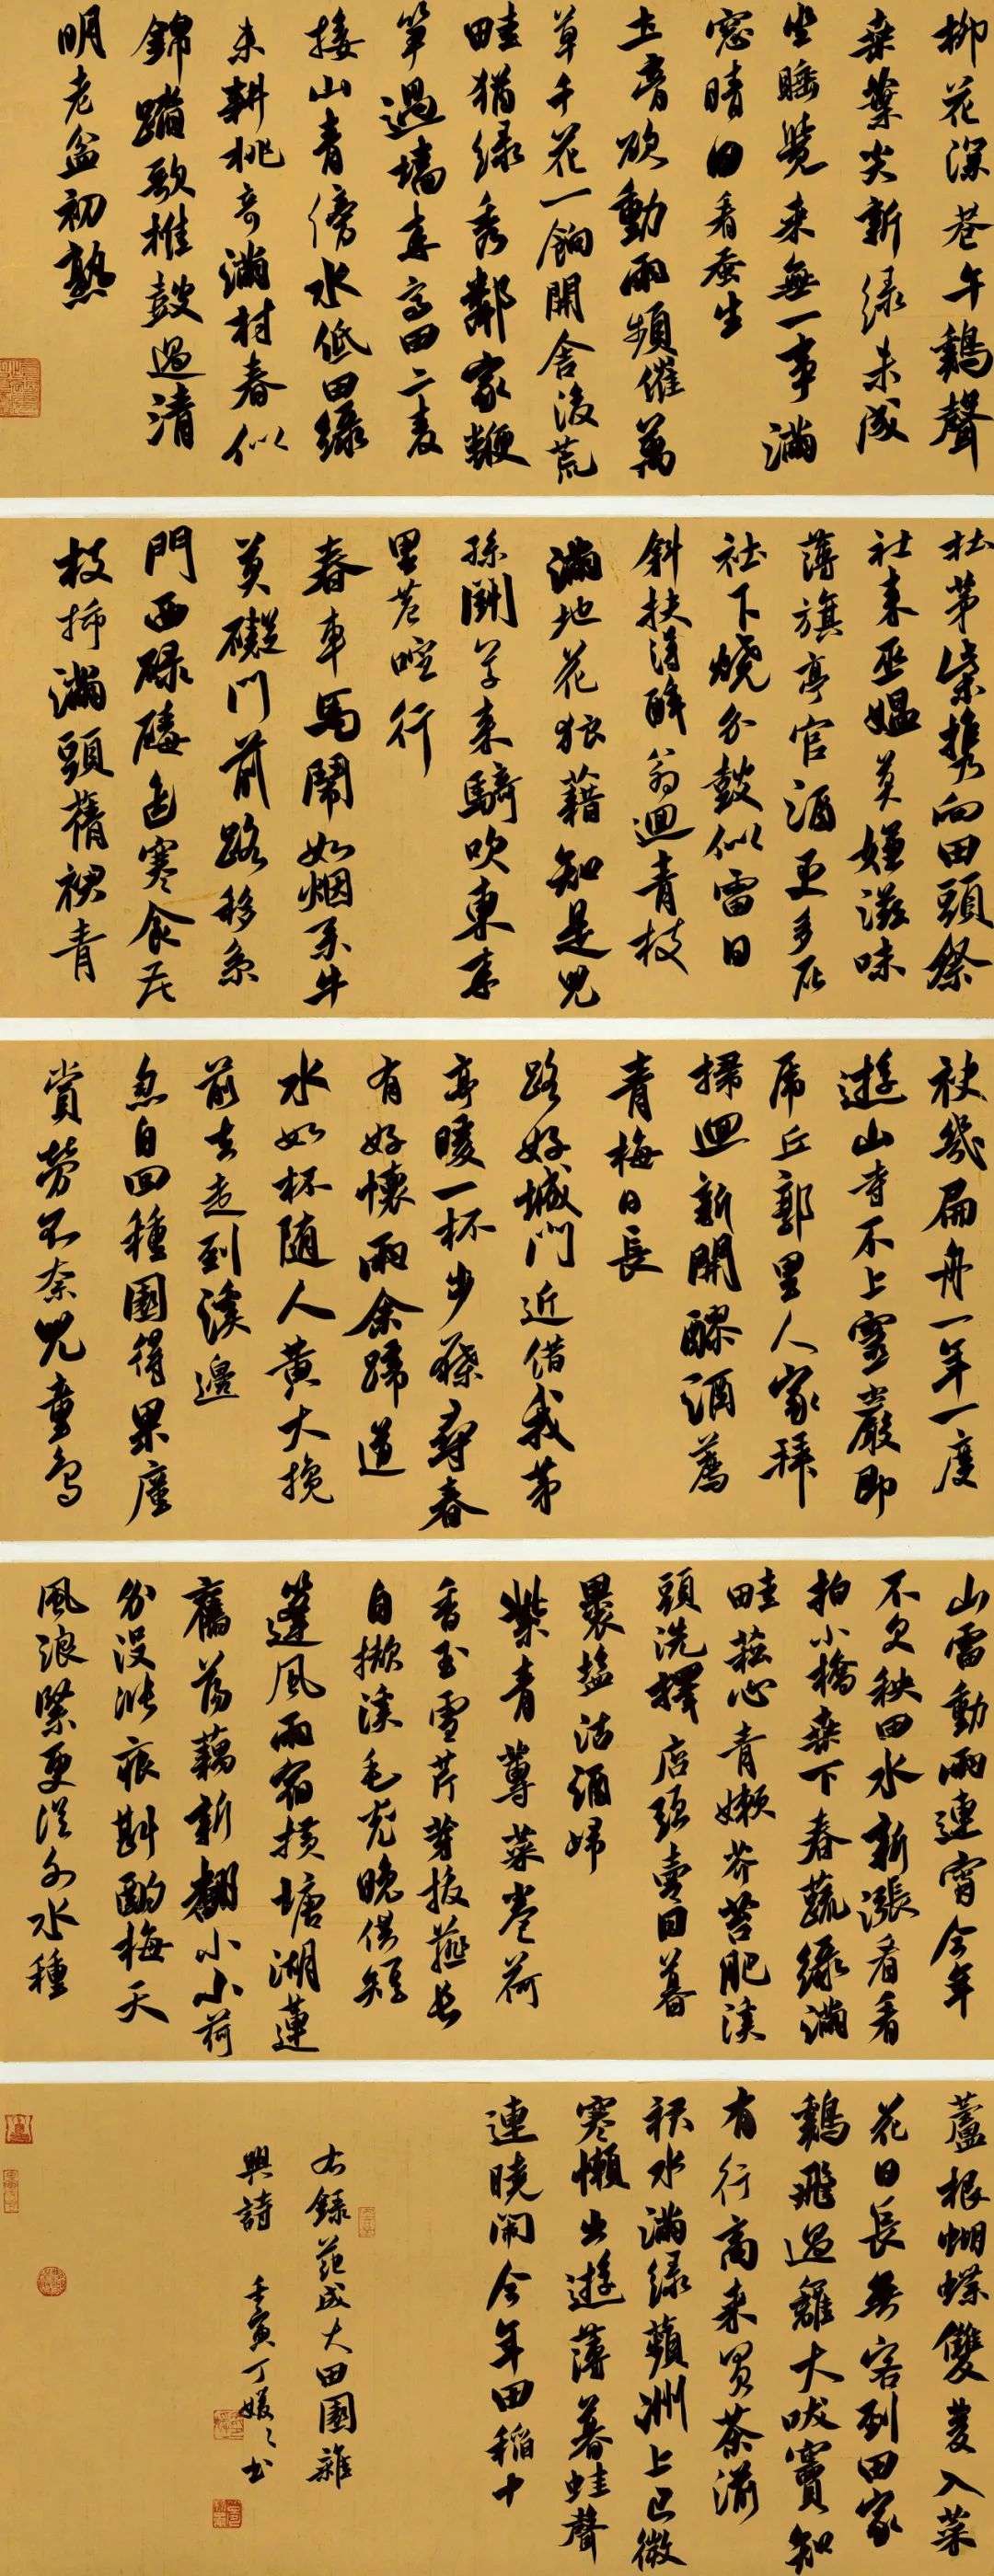 柳花深巷午鷄聲
桒葉尖新緑未成
坐睡覺来無一事滿
窓晴日看蚕生
土膏欲動雨頻催萬
草千花一餉開舍後荒
畦猶绿秀鄰家鞭
笋過墻来高田二麦
接山青傍水低田绿
未耕桃杏滿村春似
錦踏歌椎鼓過清
明老盆初熟
杜茅柴携向田頭祭
社来巫媼莫嫌滋味
薄旗亭官酒更多灰
社下燒分鼓似雷日
斜扶得醉翁迴青枝
滿地花狼藉知是兒
孫鬪草来騎吹東来
里巷喧行
春車馬鬧如烟系牛
莫礙門前路移系
門西碌碡邊寒食花
枝插滿頭蒨裙青
袂幾扁舟一年一度
遊山寺不上靈巖即
虎丘郭里人家拜
掃迴新開醪酒薦
青梅日長
路好城門近借我茅
亭暖一杯步屧尋春
有好懷雨余蹄道
水如杯随人黄犬攙
前去走到溪邊
忽自回種園得果廑
賞勞不奈兒童鳥
山雷動雨連宵今年
不欠秧田水新漲看看
拍小橋桒下春蔬緑滿
畦菘心青嫩芥苔肥溪
頭洗擇店頭賣日暮
裹塩沽酒歸
紫青蓴菜卷荷
香玉雪芹芽拔薤長
自擷溪毛充晚供短
篷風雨宿横塘湖蓮
舊蕩藕新翻小小荷
分没漲痕斟酌梅天
風浪緊更從外水種
蘆根蝴蝶雙雙入菜
花日長無客到田家
鷄飛過籬犬吠竇知
有行商来買茶湔
裙水滿绿蘋洲上巳微
寒懶出遊薄暮蛙聲
連曉鬧今年田稻十
右録范成大田園雜
興詩 壬寅丁媛々書